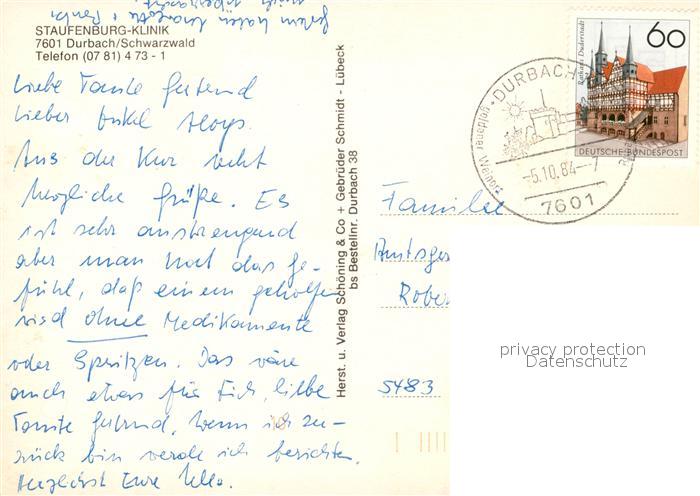 STAUFENBURG-KLINIK
7601 Durbach/Schwarzwald
Telefon (07 81) 4 73 - 1
Liebe Tante Gertrud
Lieber Onkel Aloys.
Aus der Kur recht
herzliche Grüße. Es
ist sehr anstrengend
aber man hat das Ge-
fühl, daß einem geholfen
wird ohne Medikamente
oder Spritzen. Das wäre
auch etwas für Dich, liebe
Tante Gertrud, wenn ich zu-
rück bin werde ich berichten.
Herzlichst Eure
Herst. u. Verlag Schöning & Co + Gebrüder Schmidt - Lübeck
bs Bestellnr. Durbach 38
DURBACH
-5.10.84--7
7601
Rathaus Duderstadt
60
DEUTSCHE BUNDESPOST
Familie
Amtsger
Rober
5483
privacy protection
Datenschutz